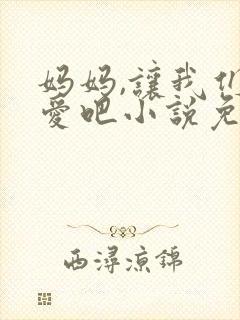 妈妈,讓我们
愛吧小說免
西潯涼錦